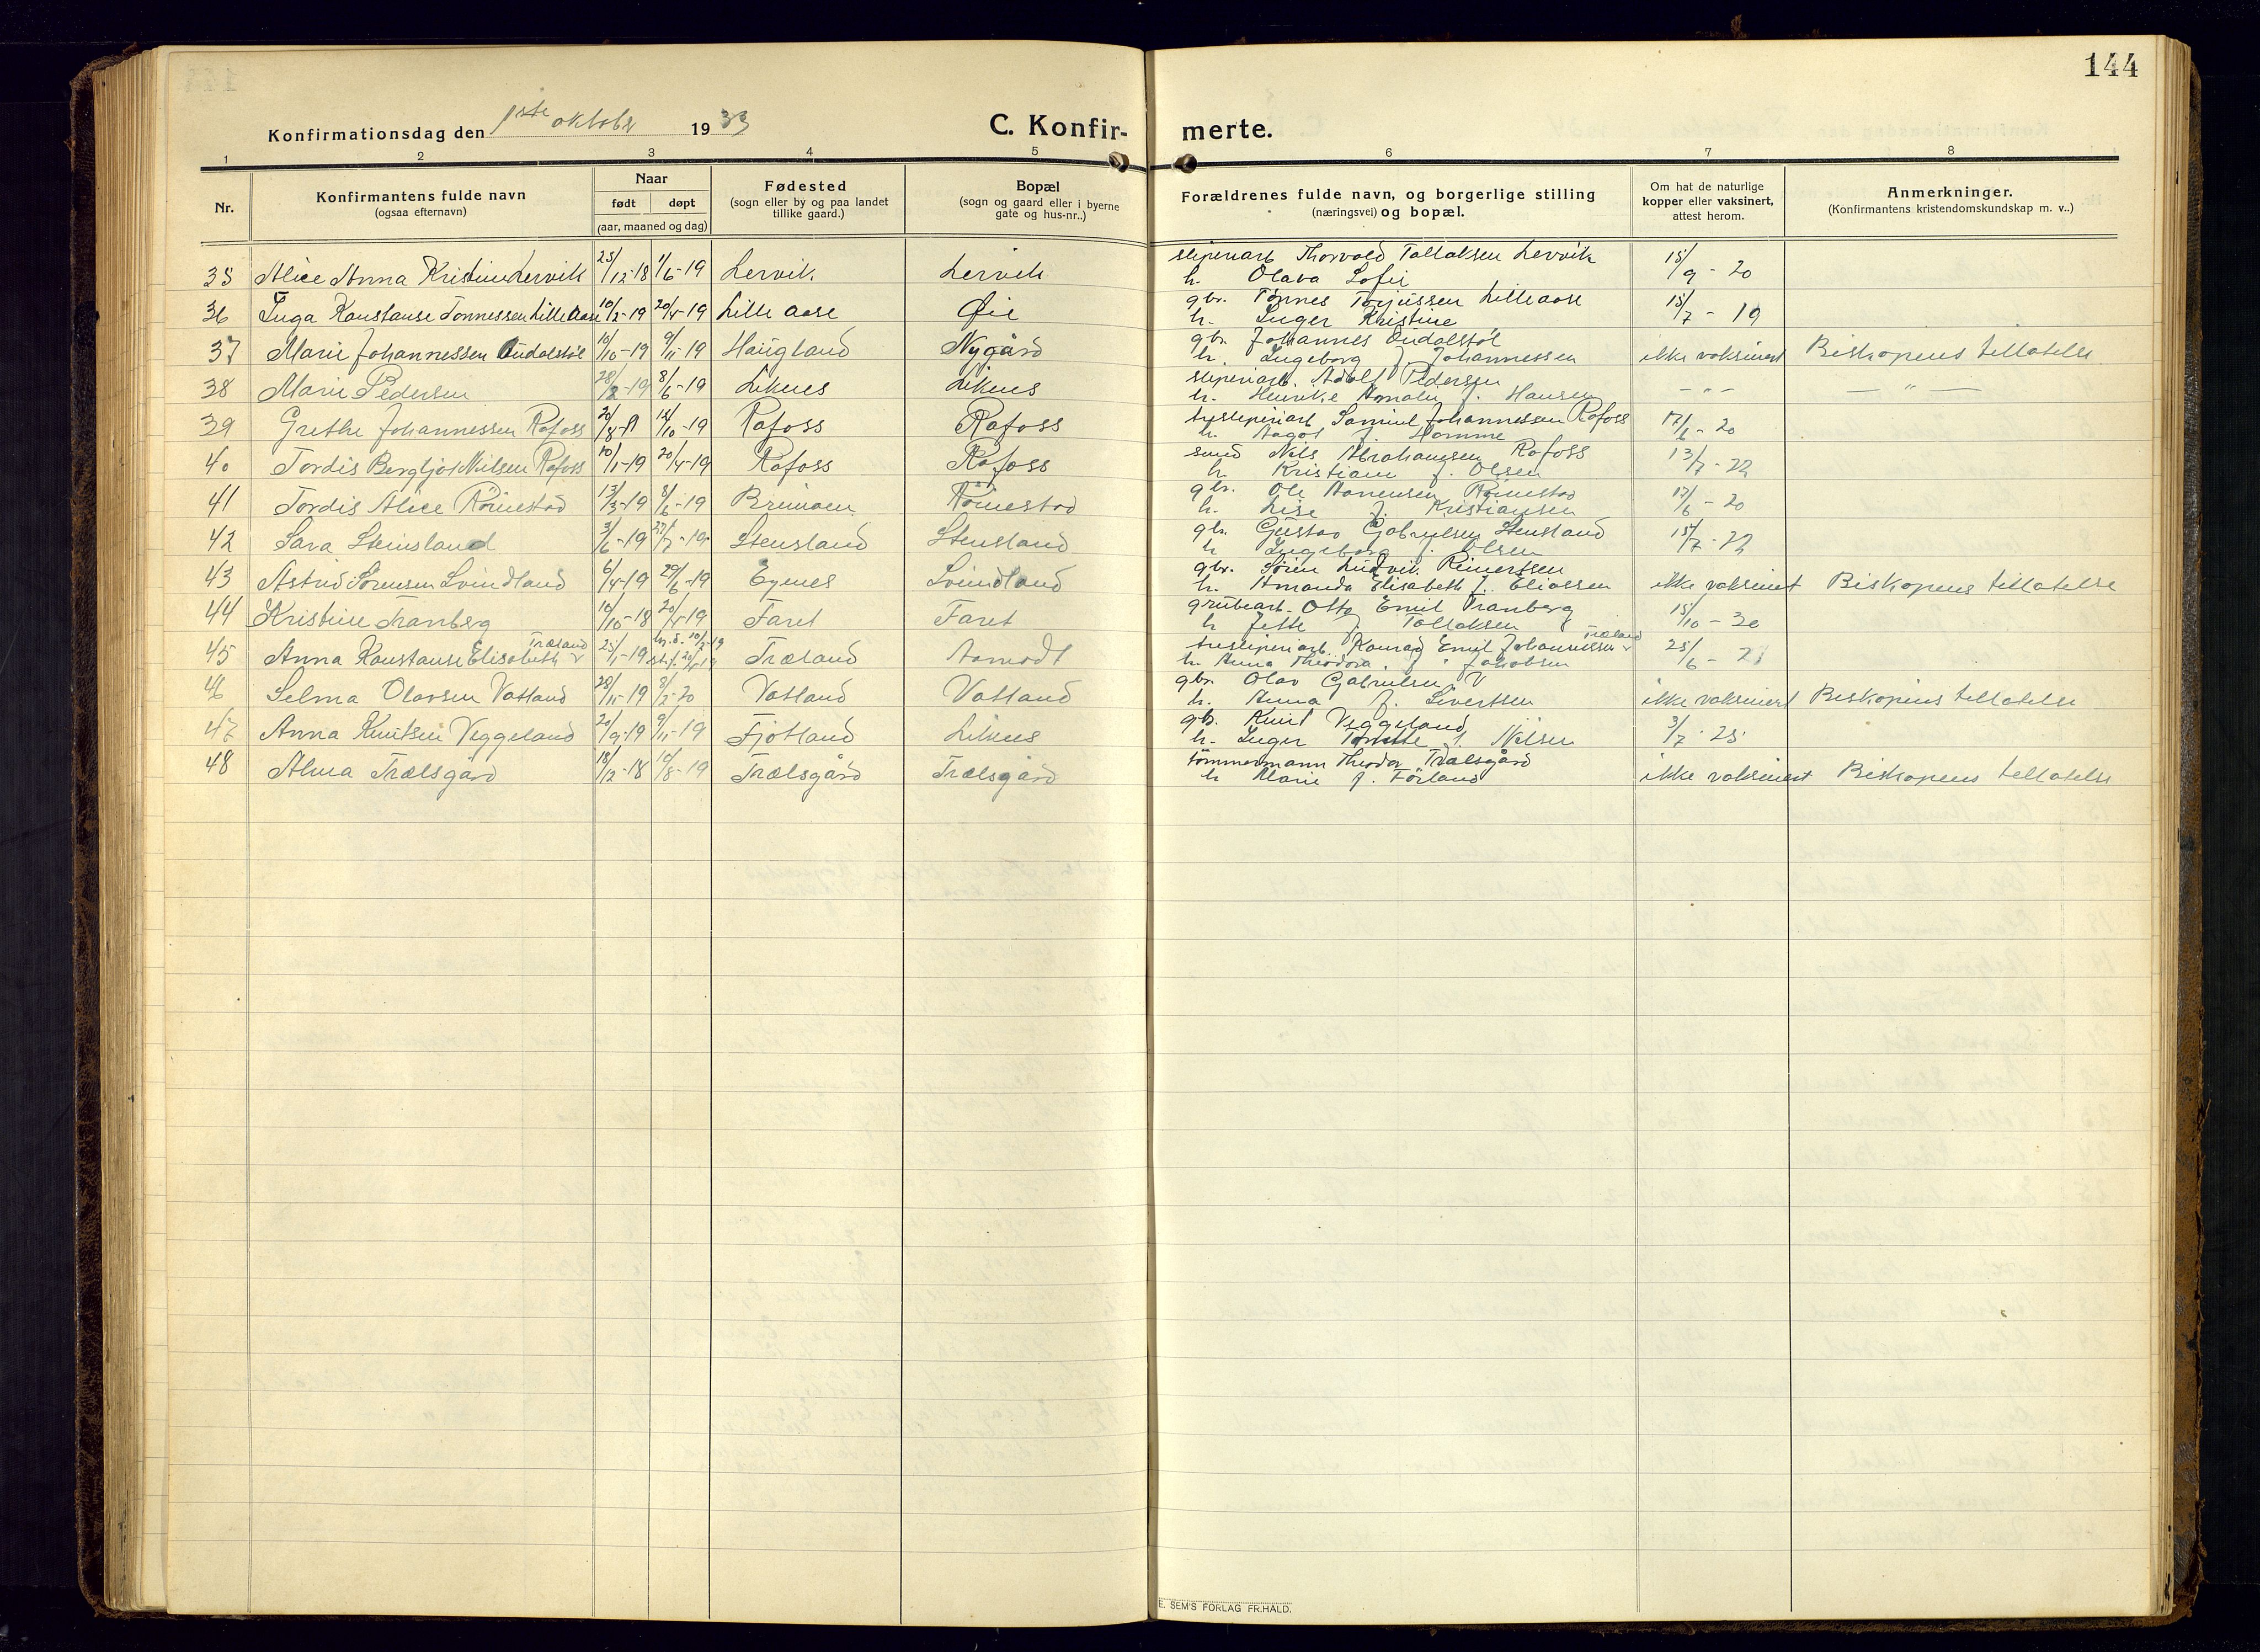 144
Konfirmationsdag den 1ste oktober 1933
C. Konfirmerte.
1 2 3 4 5 6 7 8
Nr.
Konfirmantens fulde navn
(ogsaa efternavn)
Naar
født døpt
(aar, maaned og dag)
Fødested
(sogn eller by og paa landet
tillike gaard.)
Bopæl
(sogn og gaard eller i byerne
gate og hus-nr..)
Forældrenes fulde navn, og borgerlige stilling
(næringsvei) og bopæl.
Om hat de naturlige
kopper eller vaksinert,
attest herom.
Anmerkninger.
(Konfirmantens kristendomskundskap m. v..)
35 Alice Anna Kristine Lervik 25/12-18 1/6-19 Lervik Lervik sliperiarb Thorvald Tallaksen Lervik 15/9-20
h. Olava Sofie
36 Inga Konstanse Tonnessen Lille Aase 10/2-19 20/4-19 Lille aase Øie gbr. Tønnes Torjussen Lilleaase 15/7-19
h. Inger Kristine
37 Marie Johannessen Oudalstøl 10/10-19 9/11-19 Haugland Nygård gbr. Johannes Oudalstøl ikke vaksinert Biskopens tillatelse
h. Ingeborg f. Johannessen
38 Marie Pedersen 28/2-19 8/6-19 Liknes Liknes sliperiarb. Adolf Pedersen - " - - " -
h. Henrike Amalie f. Hansen
39 Grethe Johannessen Rafoss 12/10-19 Rafoss Rafoss tresliperiarb Samuel Johannessen Rafoss 17/6-20
h. Aagot f. Homme
40 Tordis Bergljot Nilsen Rafoss 10/1-19 20/4-19 Rafoss Rafoss smed Nils Abrahamsen Rafoss 13/7-22
h. Kristiane f. Olsen
41 Tordis Alice Römestad 13/3-19 8/6-19 Brimoen Römestad gbr. Ole Aanensen Römestad 17/6-20
h. Lise f. Kristiansen
42 Sara Steinsland 3/6-19 27/7-19 Stensland Stensland gbr. Gustav Gabrielsen Stensland 15/7-22
h Ingeborg f. Olsen
43 Astrid Sörensen Svindland 6/4-19 29/6-19 Egenes Svindland gbr. Sören Ludvik Reinertsen ikke vaksinert Biskopens tillatelse
h. Amanda Elisabeth f. Eliassen
44 Kristine Tranberg 10/10-18 20/4-19 Faret Faret grubearb. Otto Emil Tranberg 15/10-30
h Jette f Tallaksen
45 Anna Konstanse Elisabeth Træland 25/1-19 Træland Aamodt tresliperiarb. Konrad Emil Johannessen Træland 25/6-21
h. Anna Theodora f. Jakobsen
46 Selma Olavsen Vatland 28/11-19 8/2-20 Vatland Vatland gbr Olav Gabrielsen V ikke vaksinert Biskopens tillatelse
h. Anna f. Sivertsen
47 Anna Knutsen Veggeland 20/9-19 9/11-19 Fjotland Liknes gb. Knut Veggeland 3/7-25
h. Inger Tomine f. Nilsen
48 Alma Trælsgård 18/12-18 10/8-19 Trælsgård Trælsgård tömmermann Theodor Trælsgård ikke vaksinert Biskopens tillatelse
h Marie f. Förland
E. SEM'S FORLAG FR.HALD.